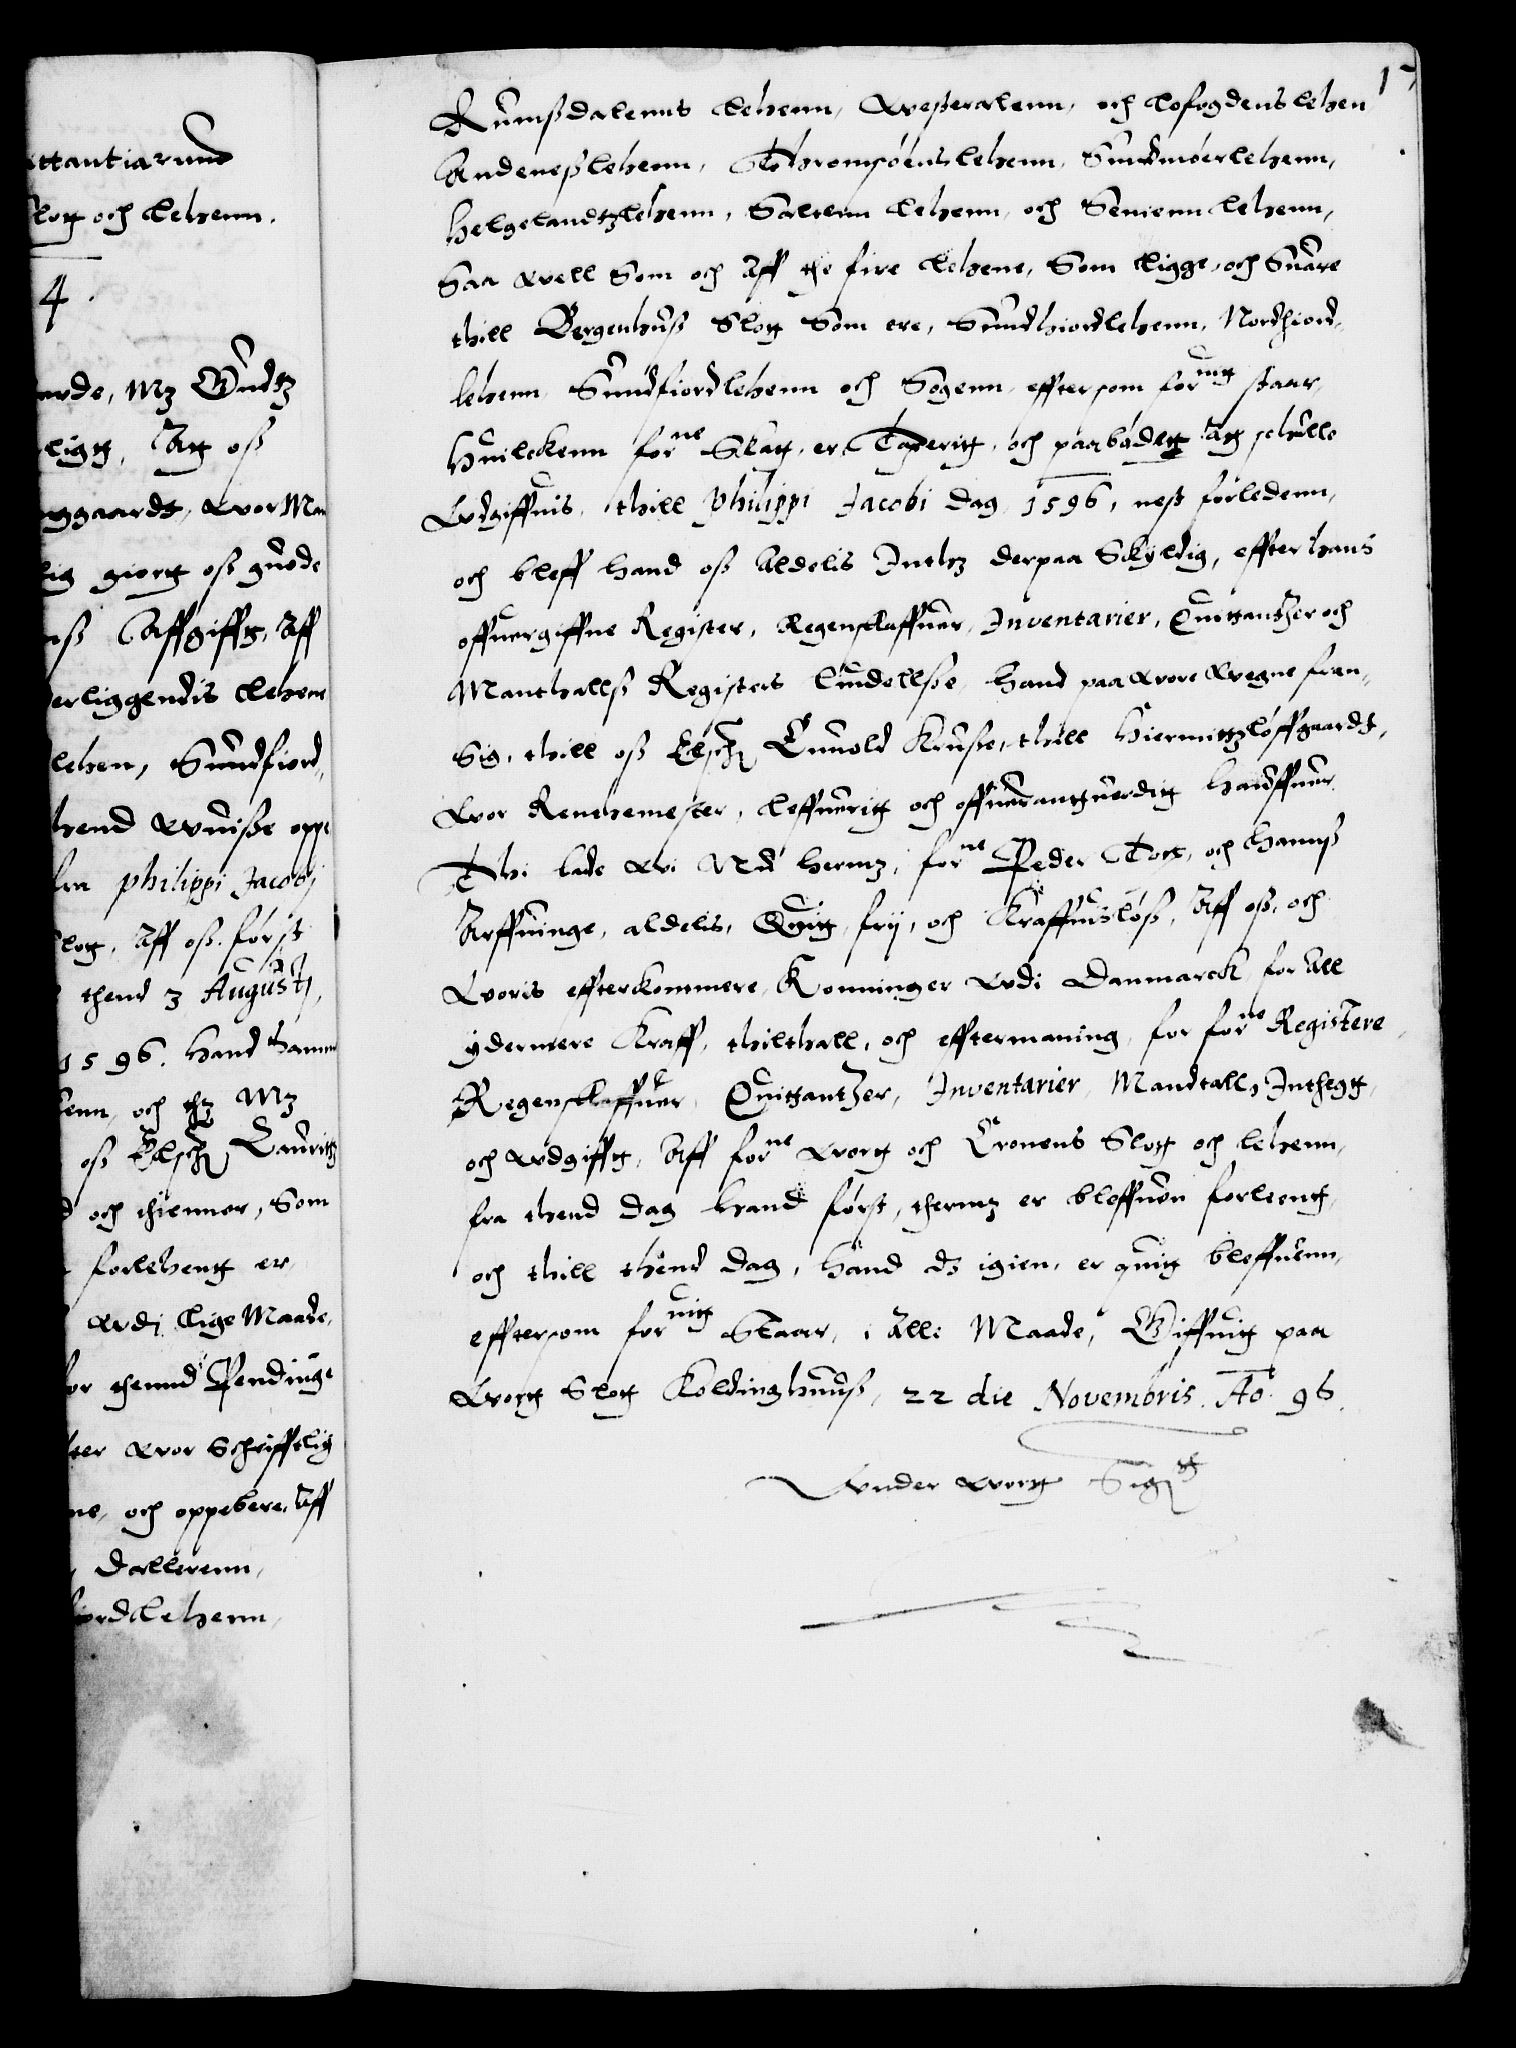 ttantiarum
Slott och Lehenn.
4.
rde, Mz Gudtz
ligtt, Att oss
ggaardt, wor Man
lig giortt oss gode
ss Affgifft, Aff
erliggendis Lehene
lehen, Sundfiord
hend wuisse opp
fra philippi Jacobj
Slott, Aff oss først
thend 3 Augustj,
1596. hand hannom
enn, och thz Mz
oss Elsch: Lauritz
och thienner, Som
forlehent er
wdj Lige Maade,
for thennd Pendinge
ter wor Schrifftlig
ne, och oppebere, Aff
Dallerenn,
iordLehenn,
17
Rumssdalenns Lehenn, Westeralenn, och Lofogdens Lehen
Andenesslehenn, Thromsöens lehenn, Sundmöerlehenn,
Helgelandtzlehenn, Saltenn Lehenn, och Senienn Lehenn,
Saa well Som och Aff the fire Lehene, Som Ligge, och Suare
thill Bergenhuss Slott Som ere, Sundhiordlehenn, Nordhiord-
lehenn Sundfiordlehenn och Sogenn, efftersom foruitt staar,
Huilckenn forne Skatt, er Taxeritt, och paabødett Att schulle
Wdgiffuis, thill Philippi Jacobi dag 1596, nest forledenn,
och bleff hand oss Aldelis Inthz derpaa Skyldig, effter hans
offuergiffne Register, Regenschaffuer, Inventarier, Quittantzer och
Manthallss Registers liudellsse, hand paa wore Wegne fran
Sig, thill oss Elsch: Enuold Kruse, thill Hiermittzløffgaardt,
Wor Renthemester, Leffuerit och offuerantuerdit haffuer
Thi lade wi Nu hermz, forne Peder Tott, och hanns
Arffuinge, aldelis, Quitt, frij, och Kraffuisløss, Aff oss, och
Woris effterkommere, Konninger wdi Danmarck, for All
ydermere Kraff, thilthall, och efftermaning, for forne Registere
Regenschaffuer, Quittantzer, Inventarier, Mandtall, Inthegtt,
och wdgifft, Aff forne wortt och Cronens Slott och lehenn,
fra thend dag hand først, thermz er bleffuen forleent,
och thill thend dag, hand dz igien, er quitt bleffuenn,
efftersom foruitt Staar, i Alle Maade, Giffuit paa
Wortt Slott Koldinghuuss, 22 die Novembris. Ao. 96.
Wnder wortt Sig:tt